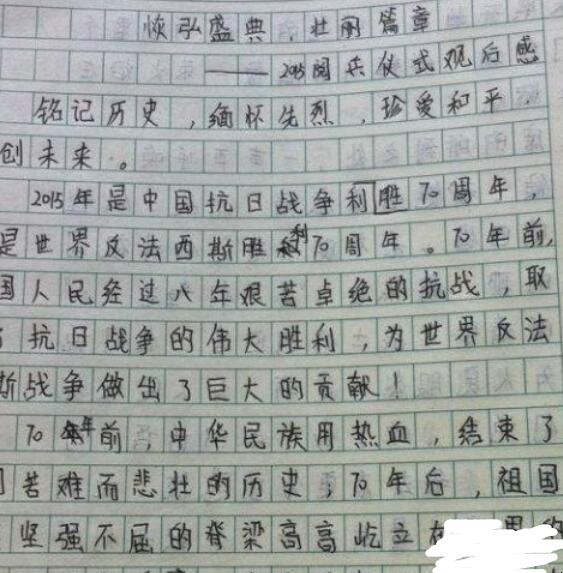 恢弘盛典，壮阔篇章
——2015阅兵仪式观后感
铭记历史，缅怀先烈，珍爱和平，
创未来。
2015年是中国抗日战争利胜70周年，
是世界反法西斯胜利70周年。70年前，
国人民经过八年艰苦卓绝的抗战，取
了抗日战争的伟大胜利，为世界反法
斯战争做出了巨大的贡献！
70年前，中华民族用热血，结束了
苦难而悲壮的历史；70年后，祖国
坚强不屈的脊梁高高屹立在